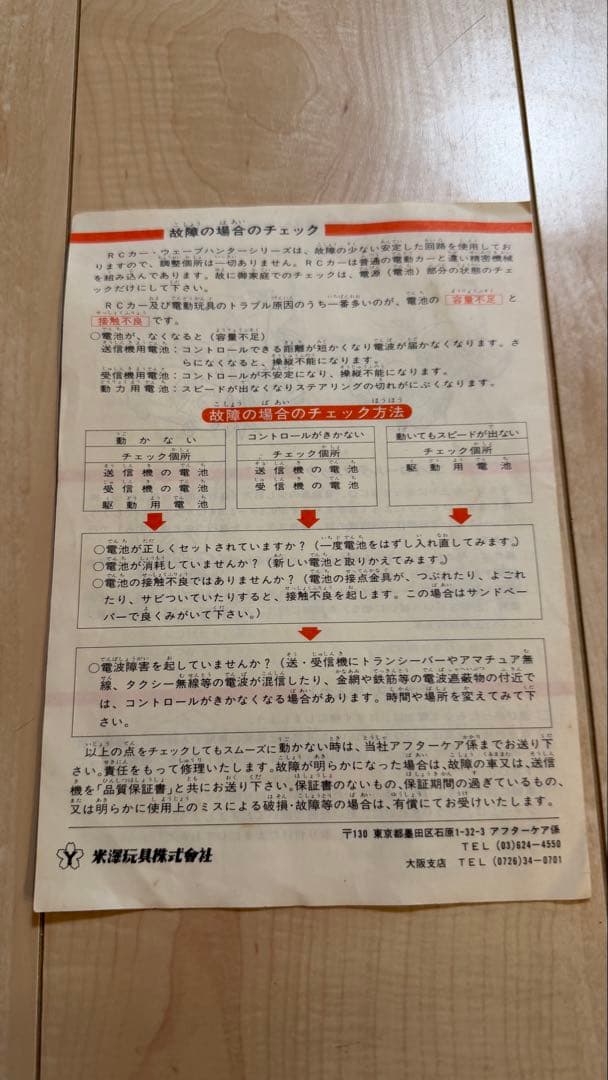 故障の場合のチェック
RCカー・ウェーブハンターシリーズは、故障の少ない安定した回路を使用してお
りますので、調整個所は一切ありません。RCカーは普通の電動カーと違い精密機械
を組み込んであります。故に御家庭でのチェックは、電源(電池)部分の状態のチェ
ックだけにして下さい。
RCカー及び電動玩具のトラブル原因のうち一番多いのが、電池の 容量不足 と
接触不良 です。
○電池が、なくなると(容量不足)
送信機用電池:コントロールできる距離が短かくなり電波が届かなくなります。さ
らになくなると、操縦不能になります。
受信機用電池:コントロールが不安定になり、操縦不能になります。
動力用電池:スピードが出なくなりステアリングの切れがにぶくなります。
故障の場合のチェック方法
動かない
チェック個所
送信機の電池
受信機の電池
駆動用電池
コントロールがきかない
チェック個所
送信機の電池
受信機の電池
動いてもスピードが出ない
チェック個所
駆動用電池
○電池が正しくセットされていますか?(一度電池をはずし入れ直してみます。)
○電池が消耗していませんか?(新しい電池と取りかえてみます。)
○電池の接触不良ではありませんか?(電池の接点金具が、つぶれたり、よごれ
たり、サビついていたりすると、接触不良を起します。この場合はサンドペー
パーで良くみがいて下さい。)
○電波障害を起していませんか?(送・受信機にトランシーバーやアマチュア無
線、タクシー無線等の電波が混信したり、金網や鉄筋等の電波遮蔽物の付近で
は、コントロールがきかなくなる場合があります。時間や場所を変えてみて下
さい。
以上の点をチェックしてもスムーズに動かない時は、当社アフターケア係までお送り下
さい。責任をもって修理いたします。故障が明らかになった場合は、故障の車又は、送信
機を「品質保証書」と共にお送り下さい。保証書のないもの、保証期間の過ぎているもの、
又は明らかに使用上のミスによる破損・故障等の場合は、有償にてお受けいたします。
〒130 東京都墨田区石原1-32-3 アフターケア係
TEL (03)624-4550
米澤玩具株式會社
大阪支店 TEL (0726)34-0701